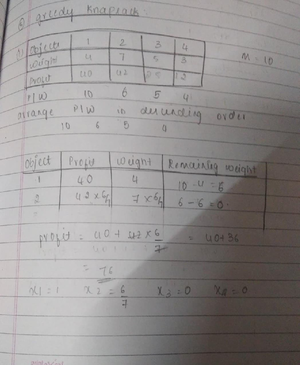 ② greedy Knapsack.
Objects 1 2 3 4
Weight 4 7 5 3 M = 10
Profit 40 42 25 12
P/W 10 6 5 4
arrange P/W in descending order
10 6 5 4
Object Profit Weight Remaining weight
1 40 4 10 - 4 = 6
2 42×6/7 7×6/7 6 - 6 = 0
profit = 40 + 42×6/7 = 40+36
= 76
x1 = 1 x2 = 6/7 x3 = 0 x4 = 0